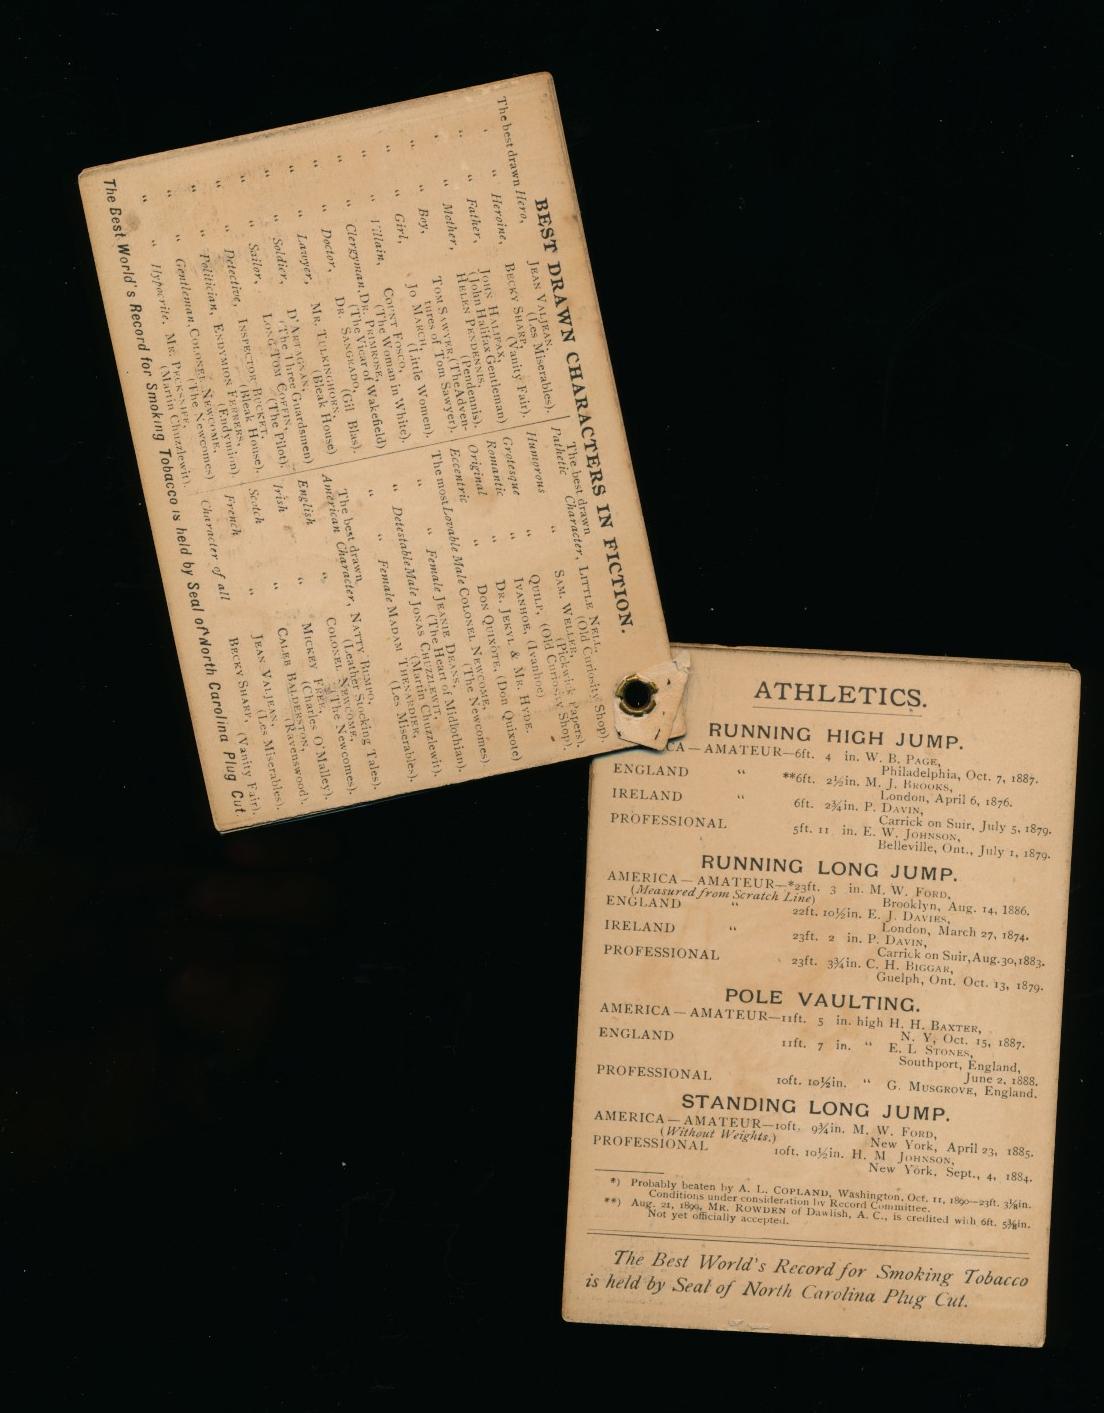 BEST DRAWN CHARACTERS IN FICTION.
The best drawn Hero, JEAN VALJEAN,
(Les Miserables).
" " Heroine, BECKY SHARP,
(Vanity Fair).
" " Father, JOHN HALIFAX,
(John Halifax Gentleman)
" " Mother, HELEN PENDENNIS,
(Pendennis).
" " Boy, TOM SAWYER, (The Adven-
tures of Tom Sawyer).
" " Girl, JO MARCH,
(Little Women).
" " Villain, COUNT FOSCO,
(The Woman in White).
" " Clergyman, DR. PRIMROSE,
(The Vicar of Wakefield)
" " Doctor, DR. SANGRADO,
(Gil Blas).
" " Lawyer, MR. TULKINGHORN,
(Bleak House)
" " Soldier, D'ARTAGNAN,
(The Three Guardsmen)
" " Sailor, LONG TOM COFFIN,
(The Pilot).
" " Detective, INSPECTOR BUCKET,
(Bleak House).
" " Politician, ENDYMION FERRERS,
(Endymion).
" " Gentleman, COLONEL NEWCOME,
(The Newcomes)
" " Hypocrite, MR. PECKSNIFF,
(Martin Chuzzlewit).
The best drawn
Pathetic Character, LITTLE NELL,
(Old Curiosity Shop)
Humorous " SAM. WELLER,
(Pickwick Papers).
Grotesque " QUILP, (Old Curiosity Shop),
Romantic " IVANHOE, (Ivanhoe)
Original " DR. JEKYL & MR. HYDE.
Eccentric " DON QUIXOTE, (Don Quixote)
The most Lovable Male COLONEL NEWCOME,
(The Newcomes)
" " Female JEANIE DEANS,
(The Heart of Midlothian).
" Detestable Male JONAS CHUZZLEWIT,
(Martin Chuzzlewit).
" " Female MADAM THENARDIER,
(Les Miserables).
The best drawn
American Character, NATTY BUMPO,
(Leather Stocking Tales).
English " COLONEL NEWCOME,
(The Newcomes).
Irish " MICKEY FREE,
(Charles O'Malley).
Scotch " CALEB BALDERSTON,
(Ravenswood).
French " JEAN VALJEAN,
(Les Miserables).
Character of all BECKY SHARP, (Vanity Fair).
The Best World's Record for Smoking Tobacco is held by Seal of North Carolina Plug Cut
ATHLETICS.
RUNNING HIGH JUMP.
CA—AMATEUR—6ft. 4 in. W. B. PAGE,
Philadelphia, Oct. 7, 1887.
ENGLAND " **6ft. 2½in. M. J. BROOKS,
London, April 6, 1876.
IRELAND " 6ft. 2¾in. P. DAVIN,
Carrick on Suir, July 5, 1879.
PROFESSIONAL 5ft. 11 in. E. W. JOHNSON,
Belleville, Ont., July 1, 1879.
RUNNING LONG JUMP.
AMERICA—AMATEUR—*23ft. 3 in. M. W. FORD,
(Measured from Scratch Line) Brooklyn, Aug. 14, 1886.
ENGLAND " 22ft. 10½in. E. J. DAVIES,
London, March 27, 1874.
IRELAND " 23ft. 2 in. P. DAVIN,
Carrick on Suir, Aug. 30, 1883.
PROFESSIONAL 23ft. 3¾in. C. H. BIGGAR,
Guelph, Ont. Oct. 13, 1879.
POLE VAULTING.
AMERICA—AMATEUR—11ft. 5 in. high H. H. BAXTER,
N. Y, Oct. 15, 1887.
ENGLAND 11ft. 7 in. " E. L STONES,
Southport, England,
June 2, 1888.
PROFESSIONAL 10ft. 10½in. " G. MUSGROVE, England.
STANDING LONG JUMP.
AMERICA—AMATEUR—10ft. 9¾in. M. W. FORD,
(Without Weights.) New York, April 23, 1885.
PROFESSIONAL 10ft. 10½in. H. M JOHNSON,
New York. Sept., 4, 1884.
*) Probably beaten by A. L. COPLAND, Washington, Oct. 11, 1890—23ft. 3⅛in.
Conditions under consideration by Record Committee.
**) Aug. 21, 1890, MR. ROWDEN of Dawlish, A. C., is credited with 6ft. 5⅜in.
Not yet officially accepted.
The Best World's Record for Smoking Tobacco
is held by Seal of North Carolina Plug Cut.